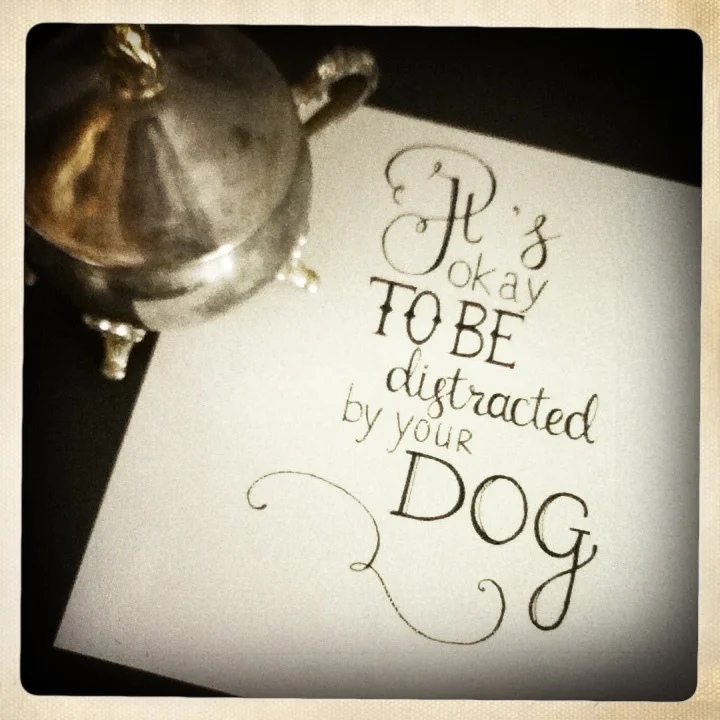 It's
okay
TO BE
distracted
by your
DOG